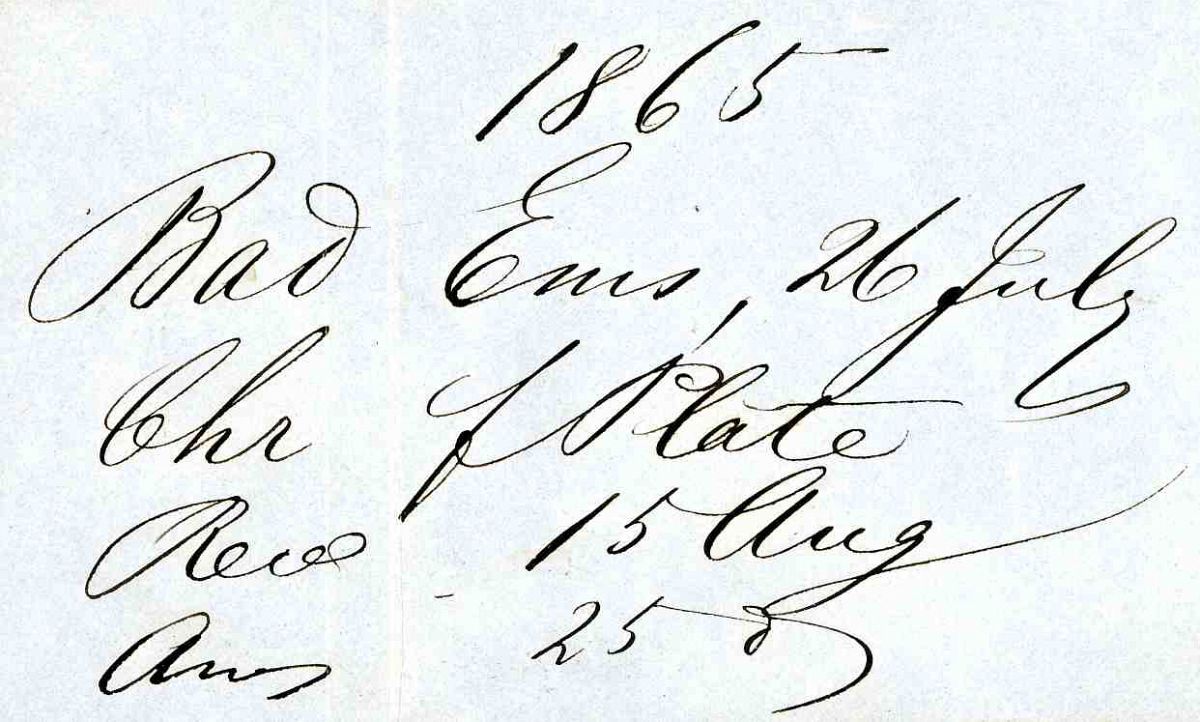 1865
Bad Ems, 26 July
Chr f Plate
Recd 15 Aug
Ans 25 d